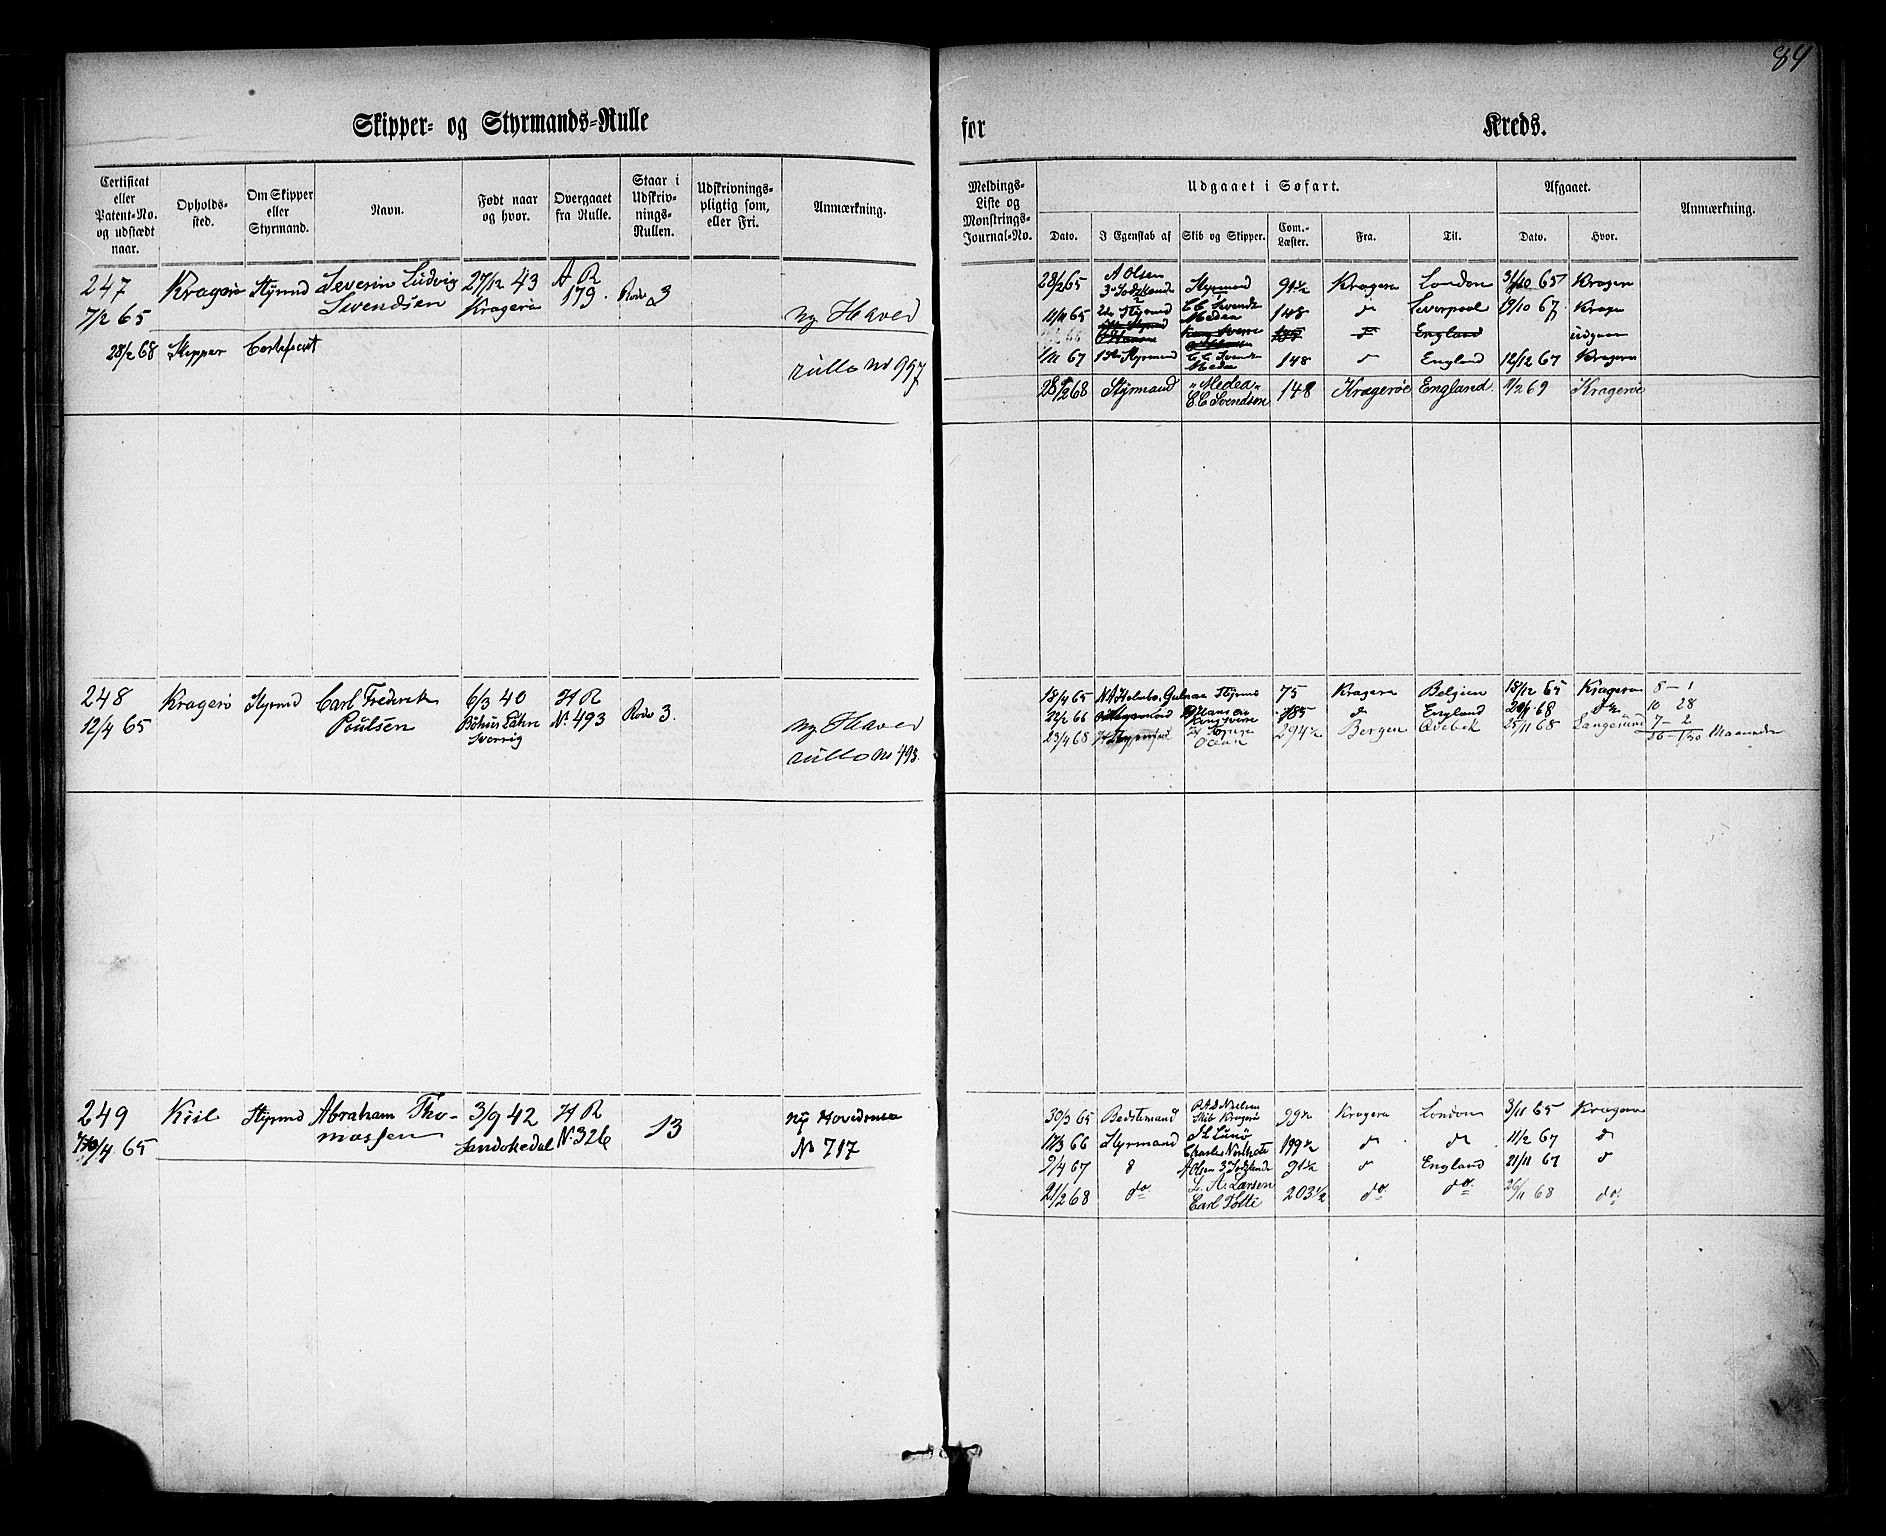 84
Skipper- og Styrmands-Rulle
for Kreds.
Certificat eller Patent-No. og udstædt naar.
Opholdssted.
Om Skipper eller Styrmand.
Navn.
Født naar og hvor.
Overgaaet fra Rulle.
Staar i Udskrivnings-Rullen.
Udskrivningspligtig som, eller Fri.
Anmærkning.
Meldings-Liste og Mønstrings-Journal-No.
Udgaaet i Søfart.
Dato.
I Egenskab af
Skib og Skipper.
Com.-Læster.
Fra.
Til.
Afgaaet.
Dato.
Hvor.
Anmærkning.
247 Kragerø Styrmd Severin Ludvig 27/12 43 A R
7/2 65 Svendsen Kragerø 179. Rode 3
ny Hoved
28/2 68 Skipper Certeficat
rulle No 997
28/2 65 A Olsen Styrmand 91½ Kragerø London 31/10 65 Kragerø
11/11 65 2den Styrmd C C Svends Medea 148 do Liverpool 19/10 67 Kragø
England
1/11 67 1ste Styrmand C C Svends Medea 148 do England 12/12 67 Kragerø
28/2 68 Styrmand "Medea" C C Svendsen 148 Kragerøe England. 9/2 69 Kragerøe
248 Kragerø Styrmd Carl Frederik 6/3 40 H R
12/4 65 Poulsen Bohus Lähn Sverrig No. 493 Rode 3.
ny Hoved
rulle No 493.
18/4 65 75 Kragerø Belgien 18/12 65 Kragerø 8 - 1
22/2 66 Hansen 185 do England 68 10 28
23/4 68 Ocean 294½ Bergen 25/11 68 Langesund 7 - 2
Maaneder
249 Kiil Styrmd Abraham Tho- 3/9 42 H R
/4 65 massen Sandøkedal No. 326 13
ny Hovedrulle
No 717
30/3 65 Bedstemand P. A. D Nielsen 99½ Kragerø London 3/11 65 Kragerø
17/3 66 Styrmand Charles Northote 199½ do do 11/2 67 do
2/4 67 A Olsen 91½ do England 21/11 67 do
21/2 68 do L. A. Larsen Carl Totte 203½ do do. 26/11 68 do.